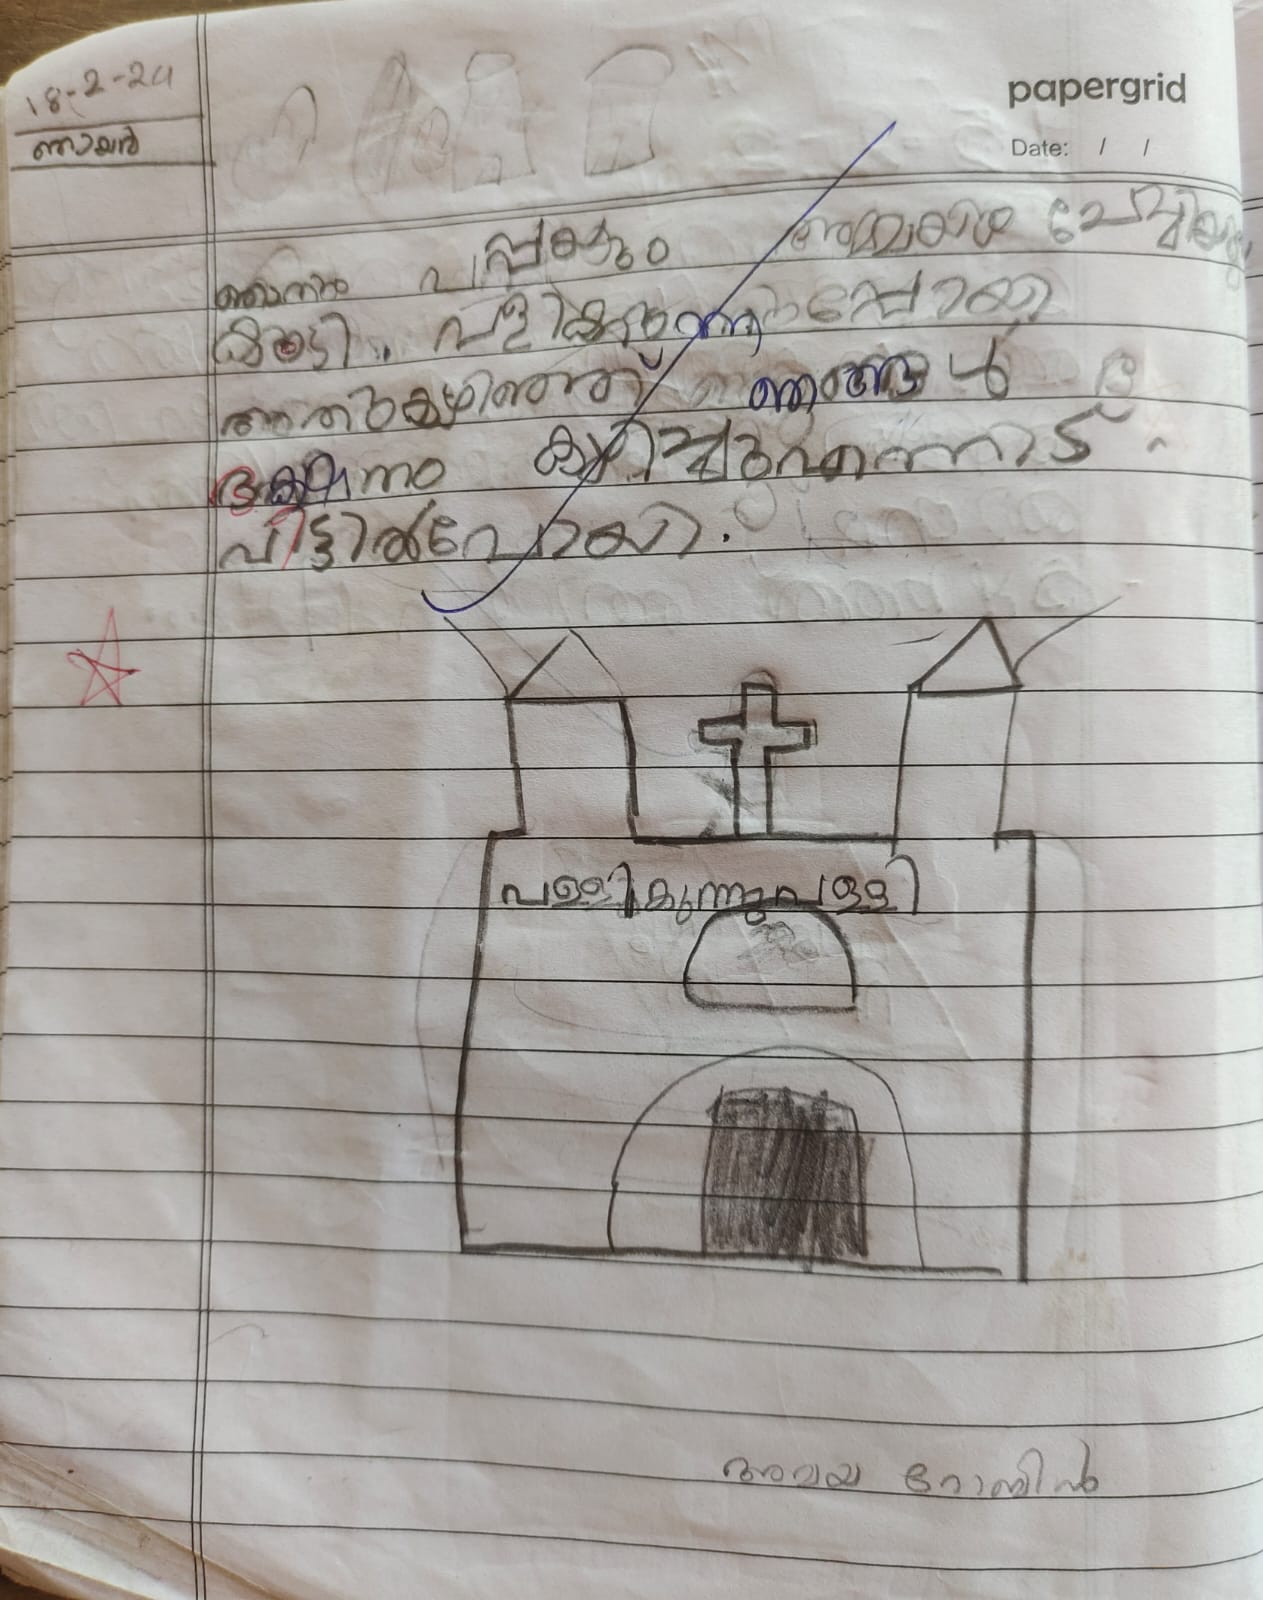 papergrid
Date: / /
18-2-24
ഞായർ
ഞാനും പപ്പയും അമ്മയും
കൂടി. പള്ളികുന്ന് പോയി
അതുകഴിഞ്ഞ് ഞങ്ങൾ ഭ
ക്ഷണം കഴിച്ചു
വീട്ടിൽപോയി.
പള്ളികുന്നുപള്ളി
അവയ റോബിൻ